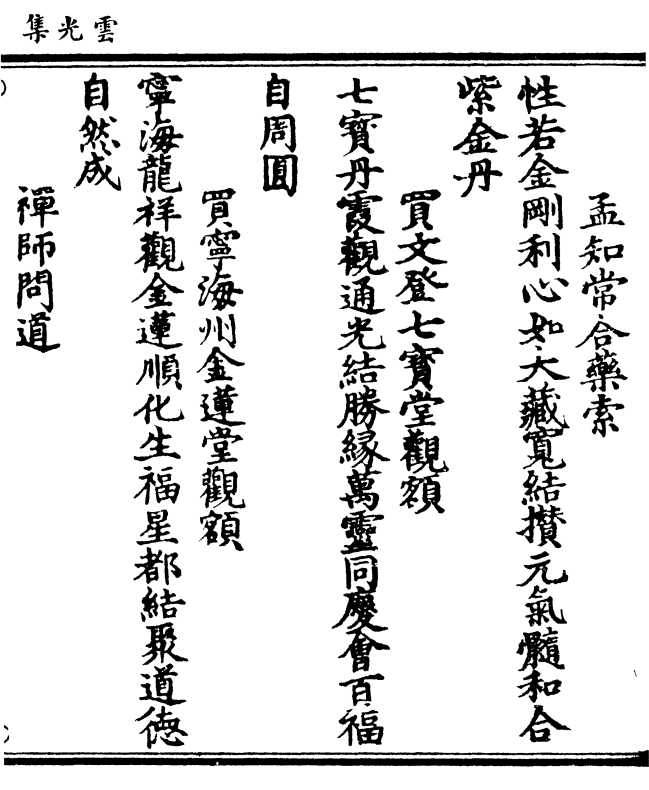 雲光集
孟知常合藥索
性若金剛利心如大藏寬結攢元氣髓和合
紫金丹
買文登七寳堂觀額
七寳丹霞觀通光結勝緣萬靈同慶會百福
自周圓
買寧海州金蓮堂觀額
寧海龍祥觀金蓮順化生福星都結聚道德
自然成
禪師問道